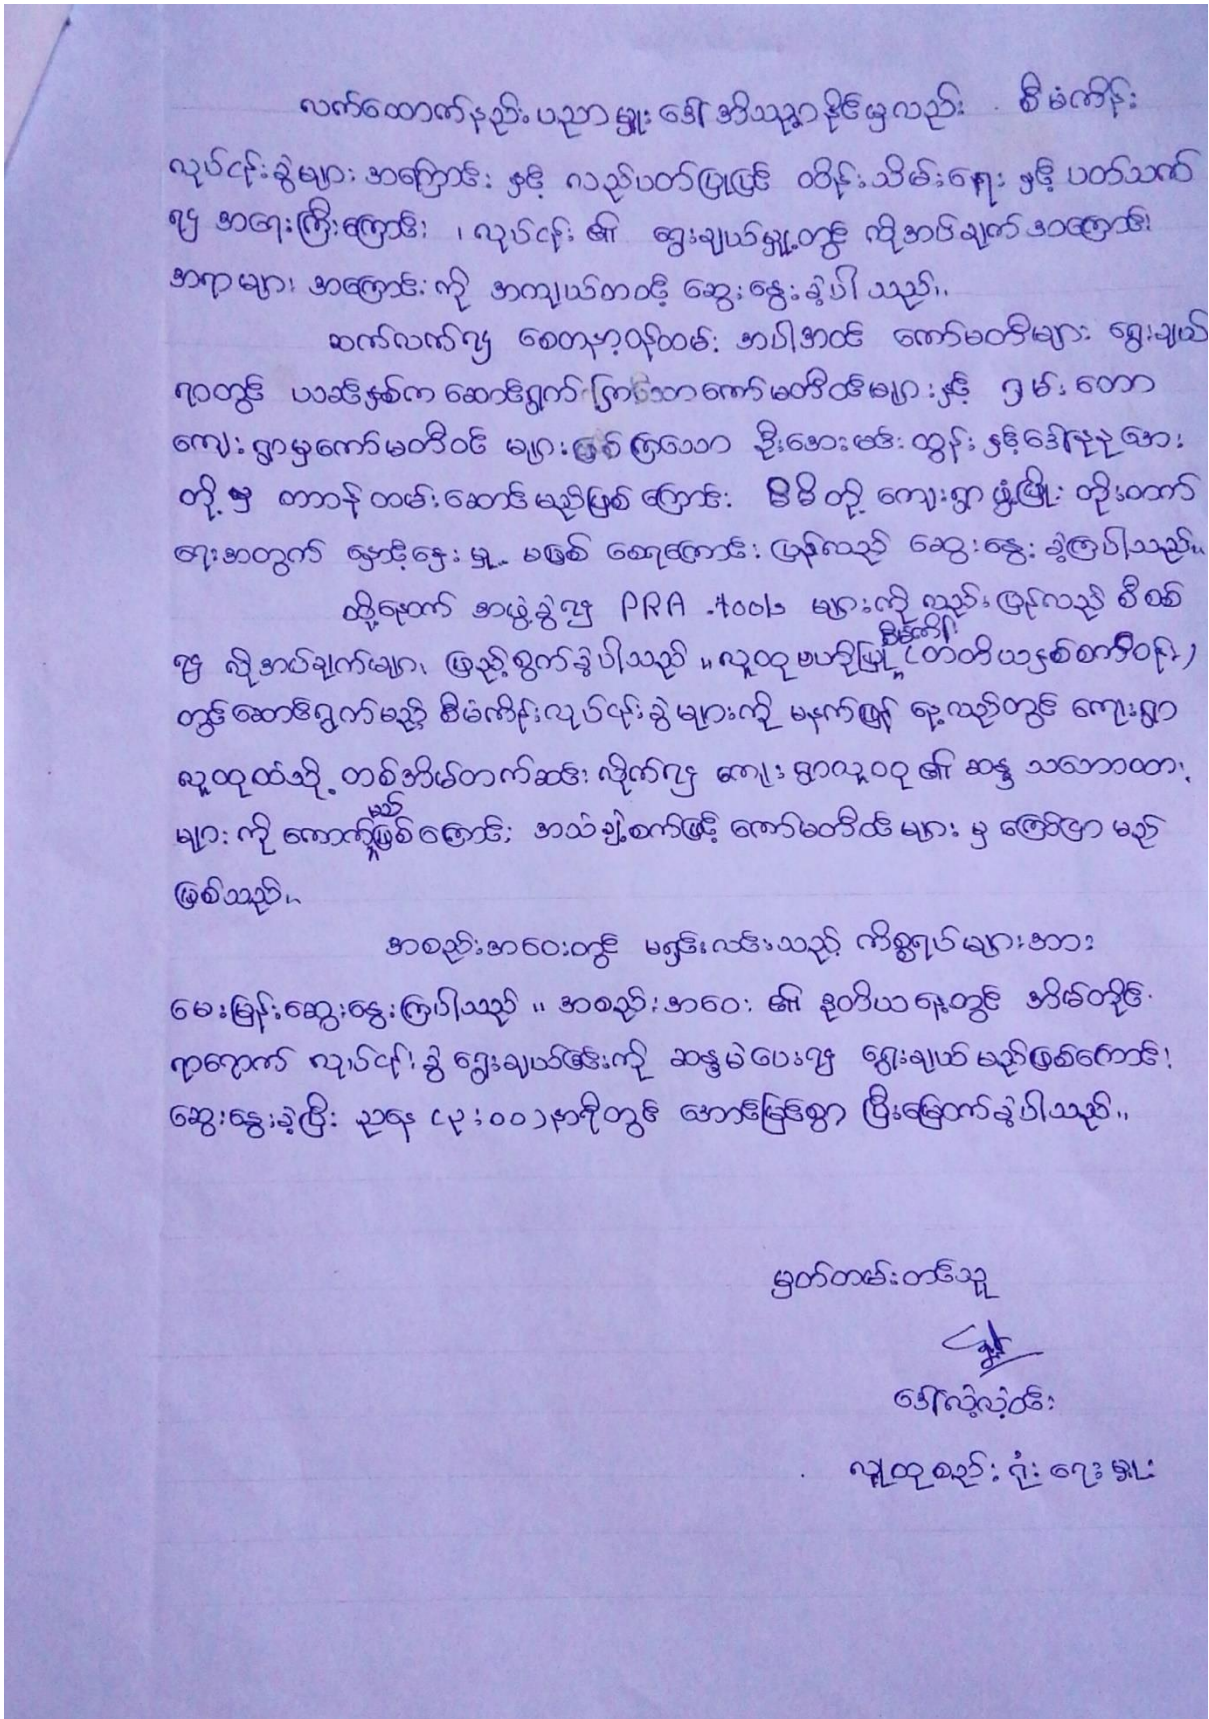 လက်ထောက်နည်းပညာမှူး ဒေါ်အိသဉ္ဇာနိုင်မှလည်း စီမံကိန်း
လုပ်ငန်းခွဲများ အကြောင်း နှင့် လည်ပတ်ပြုပြင် ထိန်းသိမ်းရေး နှင့် ပတ်သက်
၍ အရေးကြီးကြောင်း ၊ လုပ်ငန်း ၏ ရွေးချယ်မှု့တွင် လိုအပ်ချက် အကြောင်း
အရာများ အကြောင်း ကို အကျယ်တဝင့် ဆွေးနွေးခဲ့ပါသည်။
ဆက်လက်၍ စေတနာ့ဝန်ထမ်း အပါအဝင် ကော်မတီများ ရွေးချယ်
ရာတွင် ယခင်နှစ်က ဆောင်ရွက်ကြသော ကော်မတီဝင်များနှင့် ရှမ်းတော
ကျေးရွာမှကော်မတီဝင် များဖြစ်ကြသော ဦးအေးမင်းထွန်း နှင့်ဒေါ်နုနုအေး
တို့မှ တာဝန်ထမ်းဆောင်မည်ဖြစ်ကြောင်း မိမိတို့ ကျေးရွာ ဖွံ့ဖြိုး တိုးတက်
ရေးအတွက် နှောင့်နှေးမှု့ မဖြစ် စေရကြောင်း ပြန်လည် ဆွေးနွေးခဲ့ကြပါသည်။
ထို့နောက် အဖွဲ့ခွဲ၍ PRA tools များကို လည်း ပြန်လည် စီစစ်
၍ လိုအပ်ချက်များ ဖြည့်စွက်ခဲ့ပါသည် ။ လူထုဗဟိုပြုစီမံကိန်း (တတိယနှစ်စက်ဝန်း)
တွင်ဆောင်ရွက်မည့် စီမံကိန်းလုပ်ငန်းခွဲများကို မနက်ဖြန် နေ့လည်တွင် ကျေးရွာ
လူထုထံသို့ တစ်အိမ်တက်ဆင်း လိုက်၍ ကျေးရွာလူထု ၏ ဆန္ဒ သဘောထား
များ ကို ကောက်မည်ဖြစ်ကြောင်း အသံချဲ့စက်ဖြင့် ကော်မတီဝင်များ မှ ကြေငြာ မည်
ဖြစ်သည်။
အစည်းအဝေးတွင် မရှင်းလင်းသည့် ကိစ္စရပ်များအား
မေးမြန်းဆွေးနွေးကြပါသည် ။ အစည်းအဝေး ၏ ဒုတိယနေ့တွင် အိမ်တိုင်
ရာရောက် လုပ်ငန်းခွဲ ရွေးချယ်ခြင်းကို ဆန္ဒမဲပေး၍ ရွေးချယ် မည်ဖြစ်ကြောင်း
ဆွေးနွေးခဲ့ပြီး ညနေ (၃:၀၀)နာရီတွင် အောင်မြင်စွာ ပြီးမြောက်ခဲ့ပါသည်။
မှတ်တမ်းတင်သူ
ဒေါ်လဲ့လဲ့ဝင်း
လူထုစည်းရုံးရေးမှူး